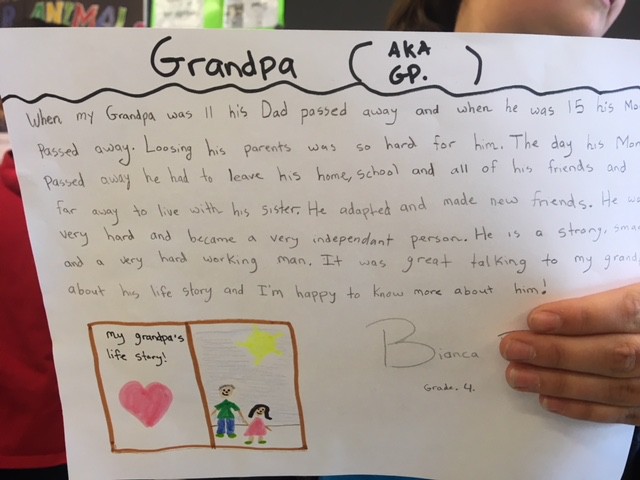 ANIMALS
Grandpa (AKA
GP.)
When my Grandpa was 11 his Dad passed away and when he was 15 his Mo
Passed away. Loosing his parents was so hard for him. The day his Mom
Passed away he had to leave his home, school and all of his friends and
far away to live with his sister. He adapted and made new friends. He wo
very hard and became a very independant person. He is a strong, smar
and a very hard working man. It was great talking to my grand
about his life story and I'm happy to know more about him!
my grandpa's
life story!
Bianca
Grade. 4.